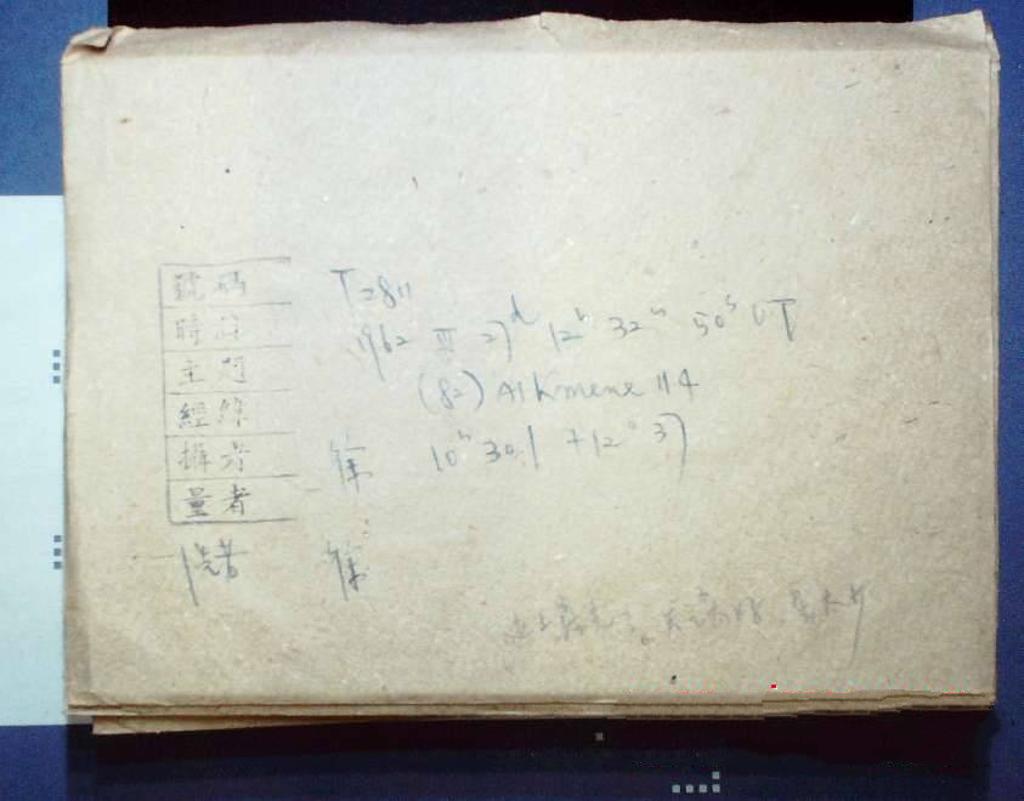 號碼 T2811
時間 1962 III 27d 12h 32m 50s UT
主 (82) Alkmene 114
經緯 10h 30.1 +12° 37
攝者 徐
量者
洗者 徐